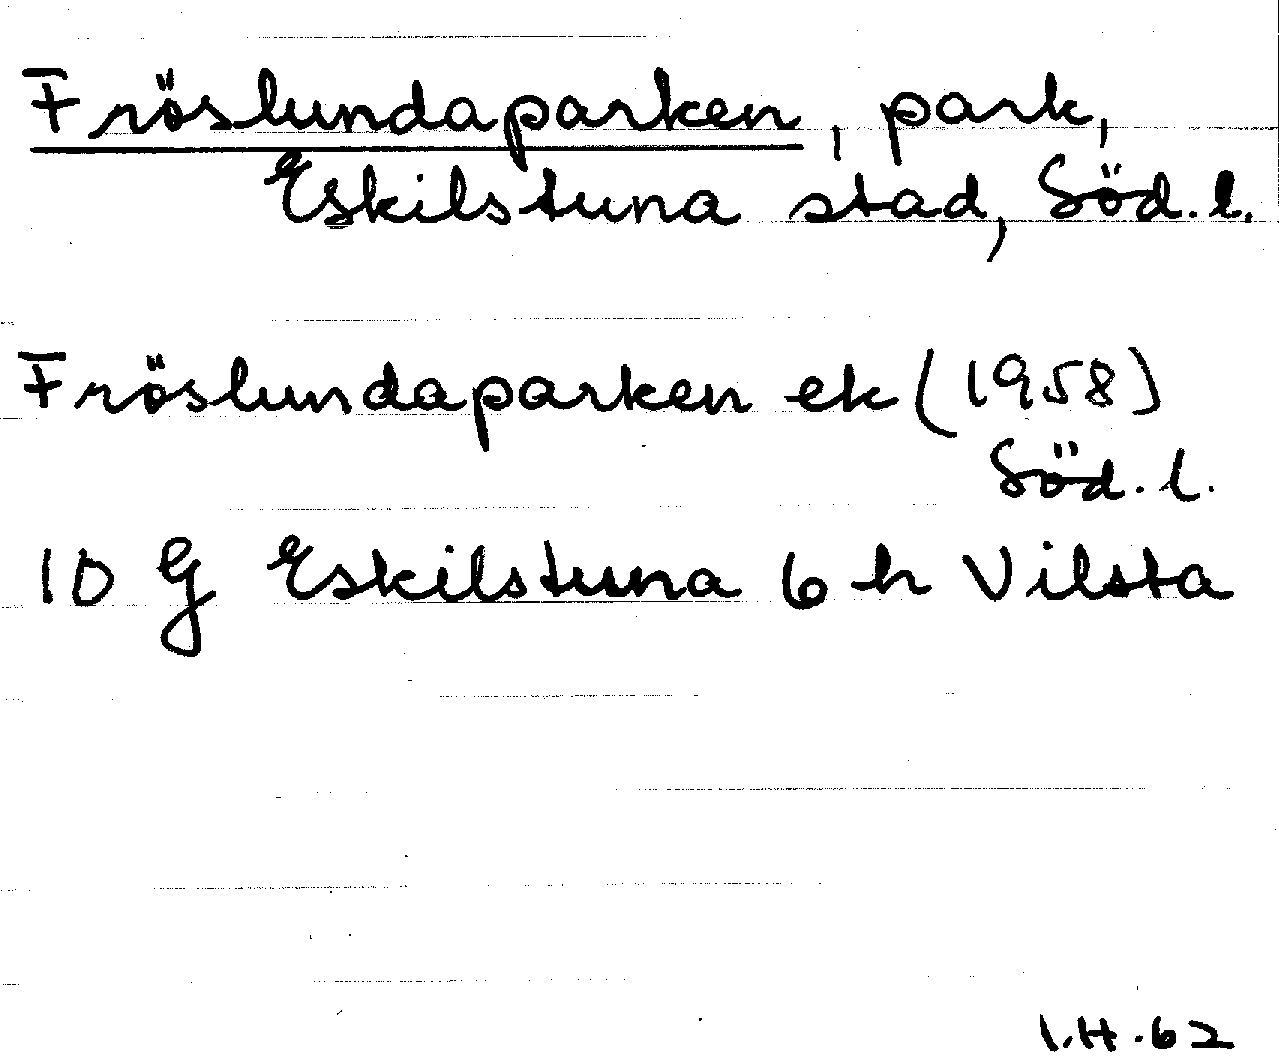 Fröslundaparken, park,
Eskilstuna stad, Söd. l.
Fröslundaparken ek (1958)
Söd. l.
10 G Eskilstuna 6 h Vilsta
I.H. 62